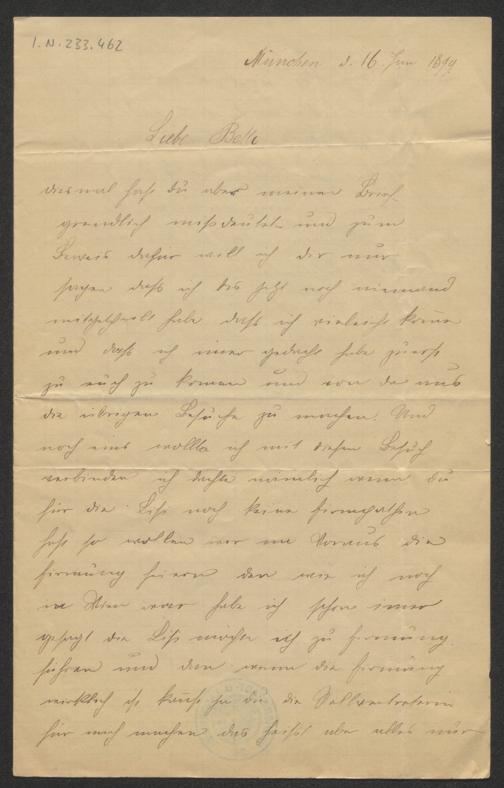 I.N. 233.462
München d. 16 Juni 1899
Liebe Betti
diesmal hast du aber meinen Brief
gründlich missdeutet und zum
Beweis dafür will ich dir nur
sagen dass ich bis jetzt noch niemand
mitgetheilt habe dass ich vieleicht komme
und dass ich imer gedacht habe zuerst
zu euch zu komen und von da aus
die übrigen Besuche zu machen. Und
noch eins wollte ich mit diesen Besuch
verbinden ich dachte nämlich wenn du
für die Lisi noch keine Firmpathin
hast so wollen wir im Voraus die
Firmung feiern den wie ich noch
in Wien war habe ich schon imer
gesagt die Lisi möchte ich zu Firmung
führen und dan wenn die Firmung
wirklich ist kanst ja du die Stellvertreterin
für mich machen das heisst aber alles nur